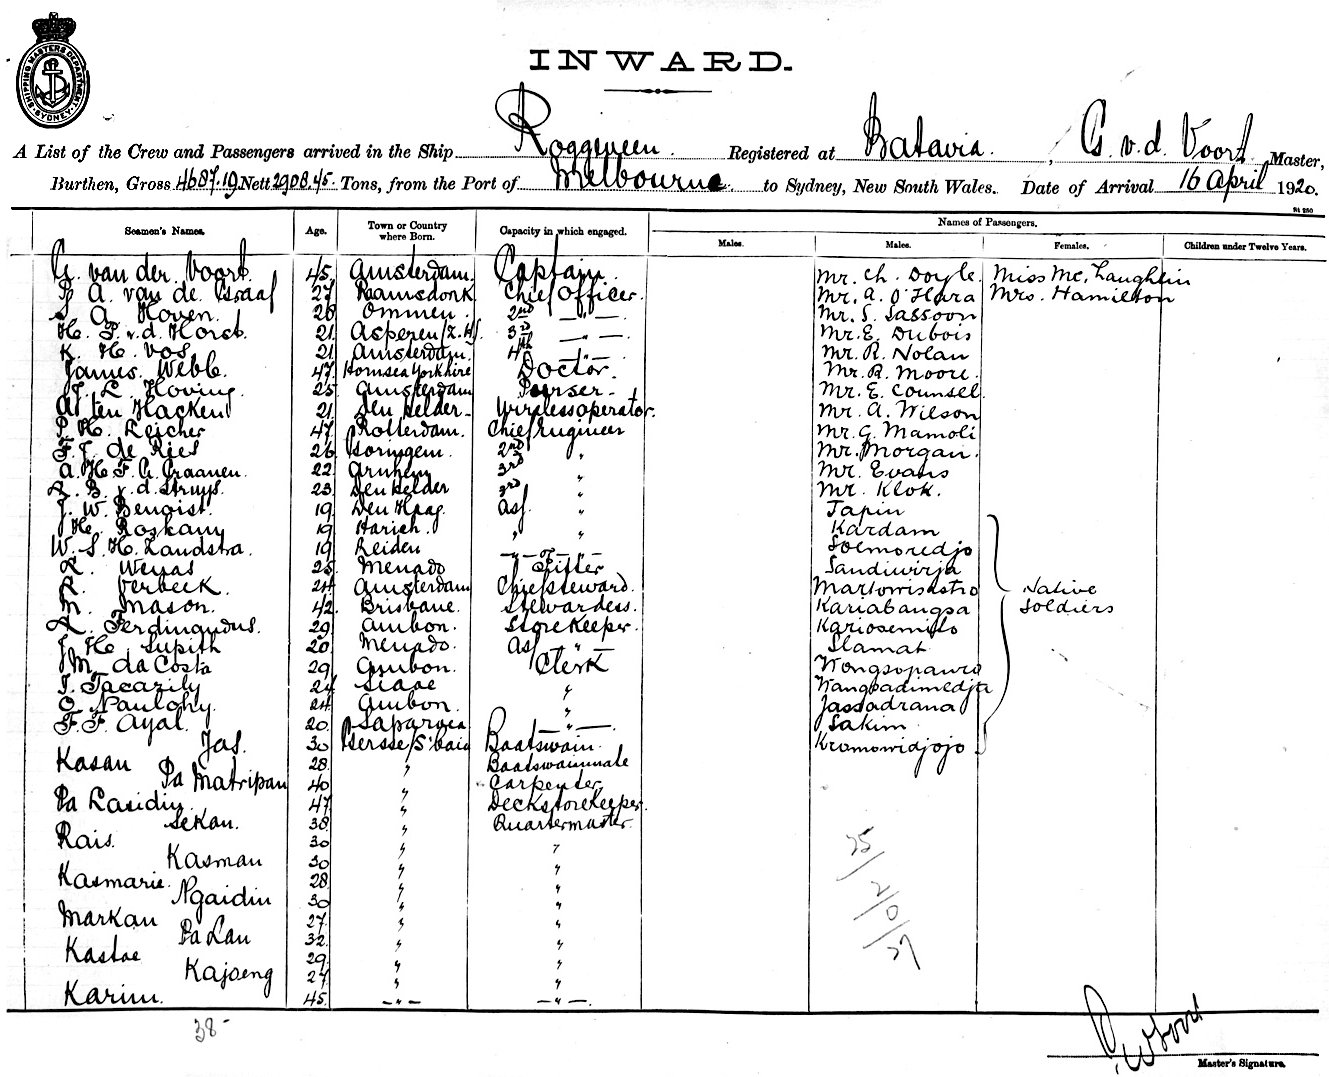 SHIPPING MASTERS DEPARTMENT SYDNEY
INWARD.
A List of the Crew and Passengers arrived in the Ship Roggeveen Registered at Batavia, G. v.d. Voort Master,
Burthen, Gross 4687.19 Nett 2908.45 Tons, from the Port of Melbourne to Sydney, New South Wales. Date of Arrival 16 April 1920.
St 250
Seamen's Names. Age. Town or Country where Born. Capacity in which engaged. Names of Passengers.
Males. Males. Females. Children under Twelve Years.
G. van der Voort. 45 Amsterdam. Captain. Mr. Ch. Doyle Miss Mc.Laughlin
A. van de Graaf 27 Ramsdonk Chief Officer. Mr. A. O'Hara Mrs. Hamilton
A. Hoven. 26 Ommen 2nd —"—. Mr. S. Sassoon
H. P. v.d. Horst. 21 Asperen (Z.H). 3rd —"—. Mr. E. Dubois
K. H. Vos 21 Amsterdam. 4th —"— Mr. R. Nolan
James Webb. 47 Hornsea Yorkshire Doctor. Mr. B. Moore.
J. L. Hoving. 25 Amsterdam Purser. Mr. E. Counsel
A. ten Hacken 21 Den Helder Wirelessoperator. Mr. A. Wilson
P. H. Reicher 47 Rotterdam. Chief Engineer Mr. G. Mamoli
F. J. de Ries 26 2nd " Mr. Morgan.
A. H. F. G. Praanen. 22 Arnhem 3rd " Mr. Evans
B. v.d. Struys. 23 Den Helder 3rd " Mr. Klok.
J. W. Benoist. 19 Den Haag Ass. " Tapin
H. Roskam 19 " " Kardam
W. S. H. Zandstra. 19 Leiden —"— Soemoredjo
R. 25 Menado Fitter Sandiwirja
R. Verbeek. 24 Amsterdam Chiefsteward. Martowisastro Native
M. Mason. 42 Brisbane. Stewardess. Kariabangsa Soldiers
Ferdinandus. 29 Ambon. Storekeeper. Kariosemito
J. H. Supith 20 Menado. Ass " Slamat
M. da Costa 29 Ambon. Clerk Wongsopawiro
J. Tacazily 24 Siaoe " Wangsadimedja
O. Naulohy 24 Ambon. " Jassadrana
F. F. Ayal. 20. Saparoea —"—. Sakim
Jas. 30 Boatswain. Kromowidjojo
Kasan 28. " Boatswainmate
Pa Matripan 40 " Carpenter
Pa Lasidin 47 " Deckstorekeeper.
Sekan. 38 " Quartermaster.
Rais. 30 " "
Kasman 30 " "
Kasmarie. 28 " "
Ngaidin 30 " "
Markan 27 " "
Pa Lan 32. " "
Kastoe 29 " "
Kajoeng 27 " "
Karim. 45. —"— —"—.
25/2/0/27
38-
G v d Voort
Master's Signature.